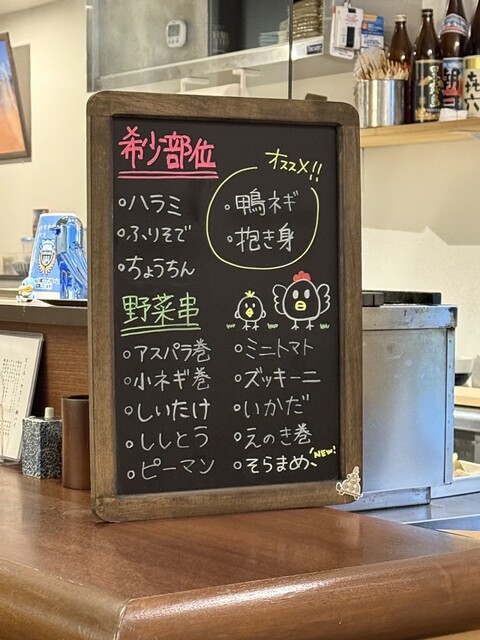 希少部位
オススメ!!
・ハラミ
・ふりそで
・ちょうちん
・鴨ネギ
・抱き身
野菜串
・アスパラ巻
・小ネギ巻
・しいたけ
・ししとう
・ピーマン
・ミニトマト
・ズッキーニ
・いかだ
・えのき巻
・そらまめ NEW!